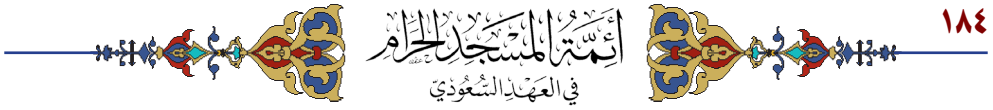 ١٨٤
أَئِمَّةُ المَسْجِدِ الحَرَامِ
فِي العَهْدِ السُّعُودِيّ